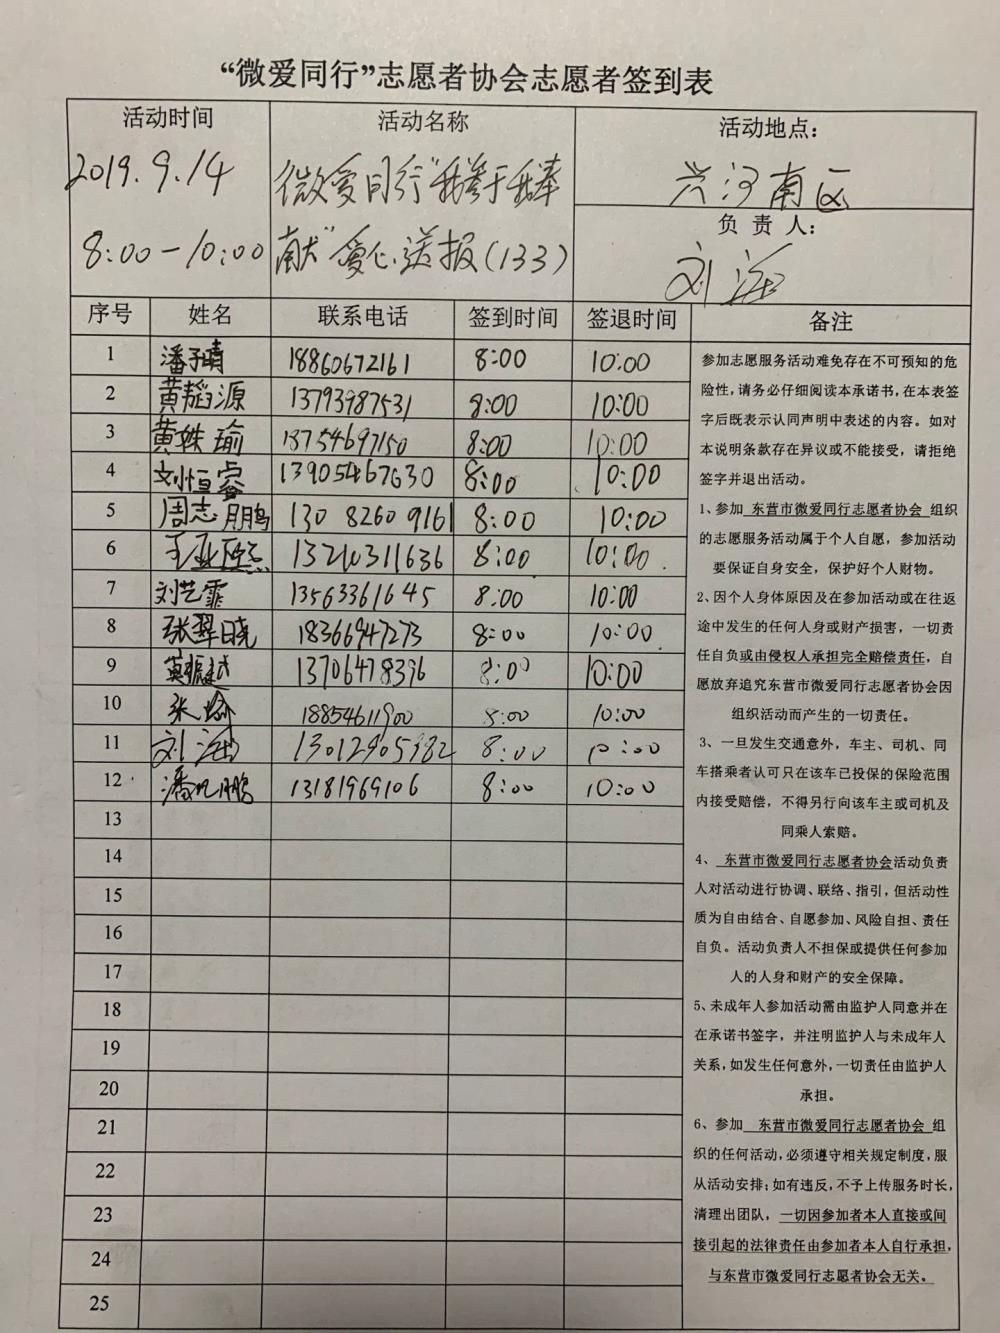 “微爱同行”志愿者协会志愿者签到表
活动时间
2019.9.14
8:00-10:00
活动名称
微爱同行“我参于我奉
献”爱心送报(133)
活动地点：
兴河南区
负责人：
刘海
序号 姓名 联系电话 签到时间 签退时间 备注
1 潘子晴 18860672161 8:00 10:00
2 黄韬源 13793987531 8:00 10:00
3 黄轶瑜 13754697150 8:00 10:00
4 刘恒睿 13905467630 8:00 10:00
5 周志鹏 13082609161 8:00 10:00
6 王亚 13210311636 8:00 10:00
7 刘艺霏 13563361645 8:00 10:00
8 张翠晓 18366947273 8:00 10:00
9 黄振越 13706478396 8:00 10:00
10 张瑜 18854611900 8:00 10:00
11 刘海 13012905982 8:00 10:00
12 潘 鹏 13181969106 8:00 10:00
13
14
15
16
17
18
19
20
21
22
23
24
25
参加志愿服务活动难免存在不可预知的危
险性，请务必仔细阅读本承诺书，在本表签
字后既表示认同声明中表述的内容。如对
本说明条款存在异议或不能接受，请拒绝
签字并退出活动。
1、参加 东营市微爱同行志愿者协会 组织
的志愿服务活动属于个人自愿，参加活动
要保证自身安全，保护好个人财物。
2、因个人身体原因及在参加活动或在往返
途中发生的任何人身或财产损害，一切责
任自负或由侵权人承担完全赔偿责任，自
愿放弃追究东营市微爱同行志愿者协会因
组织活动而产生的一切责任。
3、一旦发生交通意外，车主、司机、同
车搭乘者认可只在该车已投保的保险范围
内接受赔偿，不得另行向该车主或司机及
同乘人索赔。
4、 东营市微爱同行志愿者协会活动负责
人对活动进行协调、联络、指引，但活动性
质为自由结合、自愿参加、风险自担、责任
自负。活动负责人不担保或提供任何参加
人的人身和财产的安全保障。
5、未成年人参加活动需由监护人同意并在
在承诺书签字，并注明监护人与未成年人
关系，如发生任何意外，一切责任由监护人
承担。
6、参加 东营市微爱同行志愿者协会 组
织的任何活动，必须遵守相关规定制度，服
从活动安排；如有违反，不予上传服务时长，
清理出团队，一切因参加者本人直接或间
接引起的法律责任由参加者本人自行承担，
与东营市微爱同行志愿者协会无关。